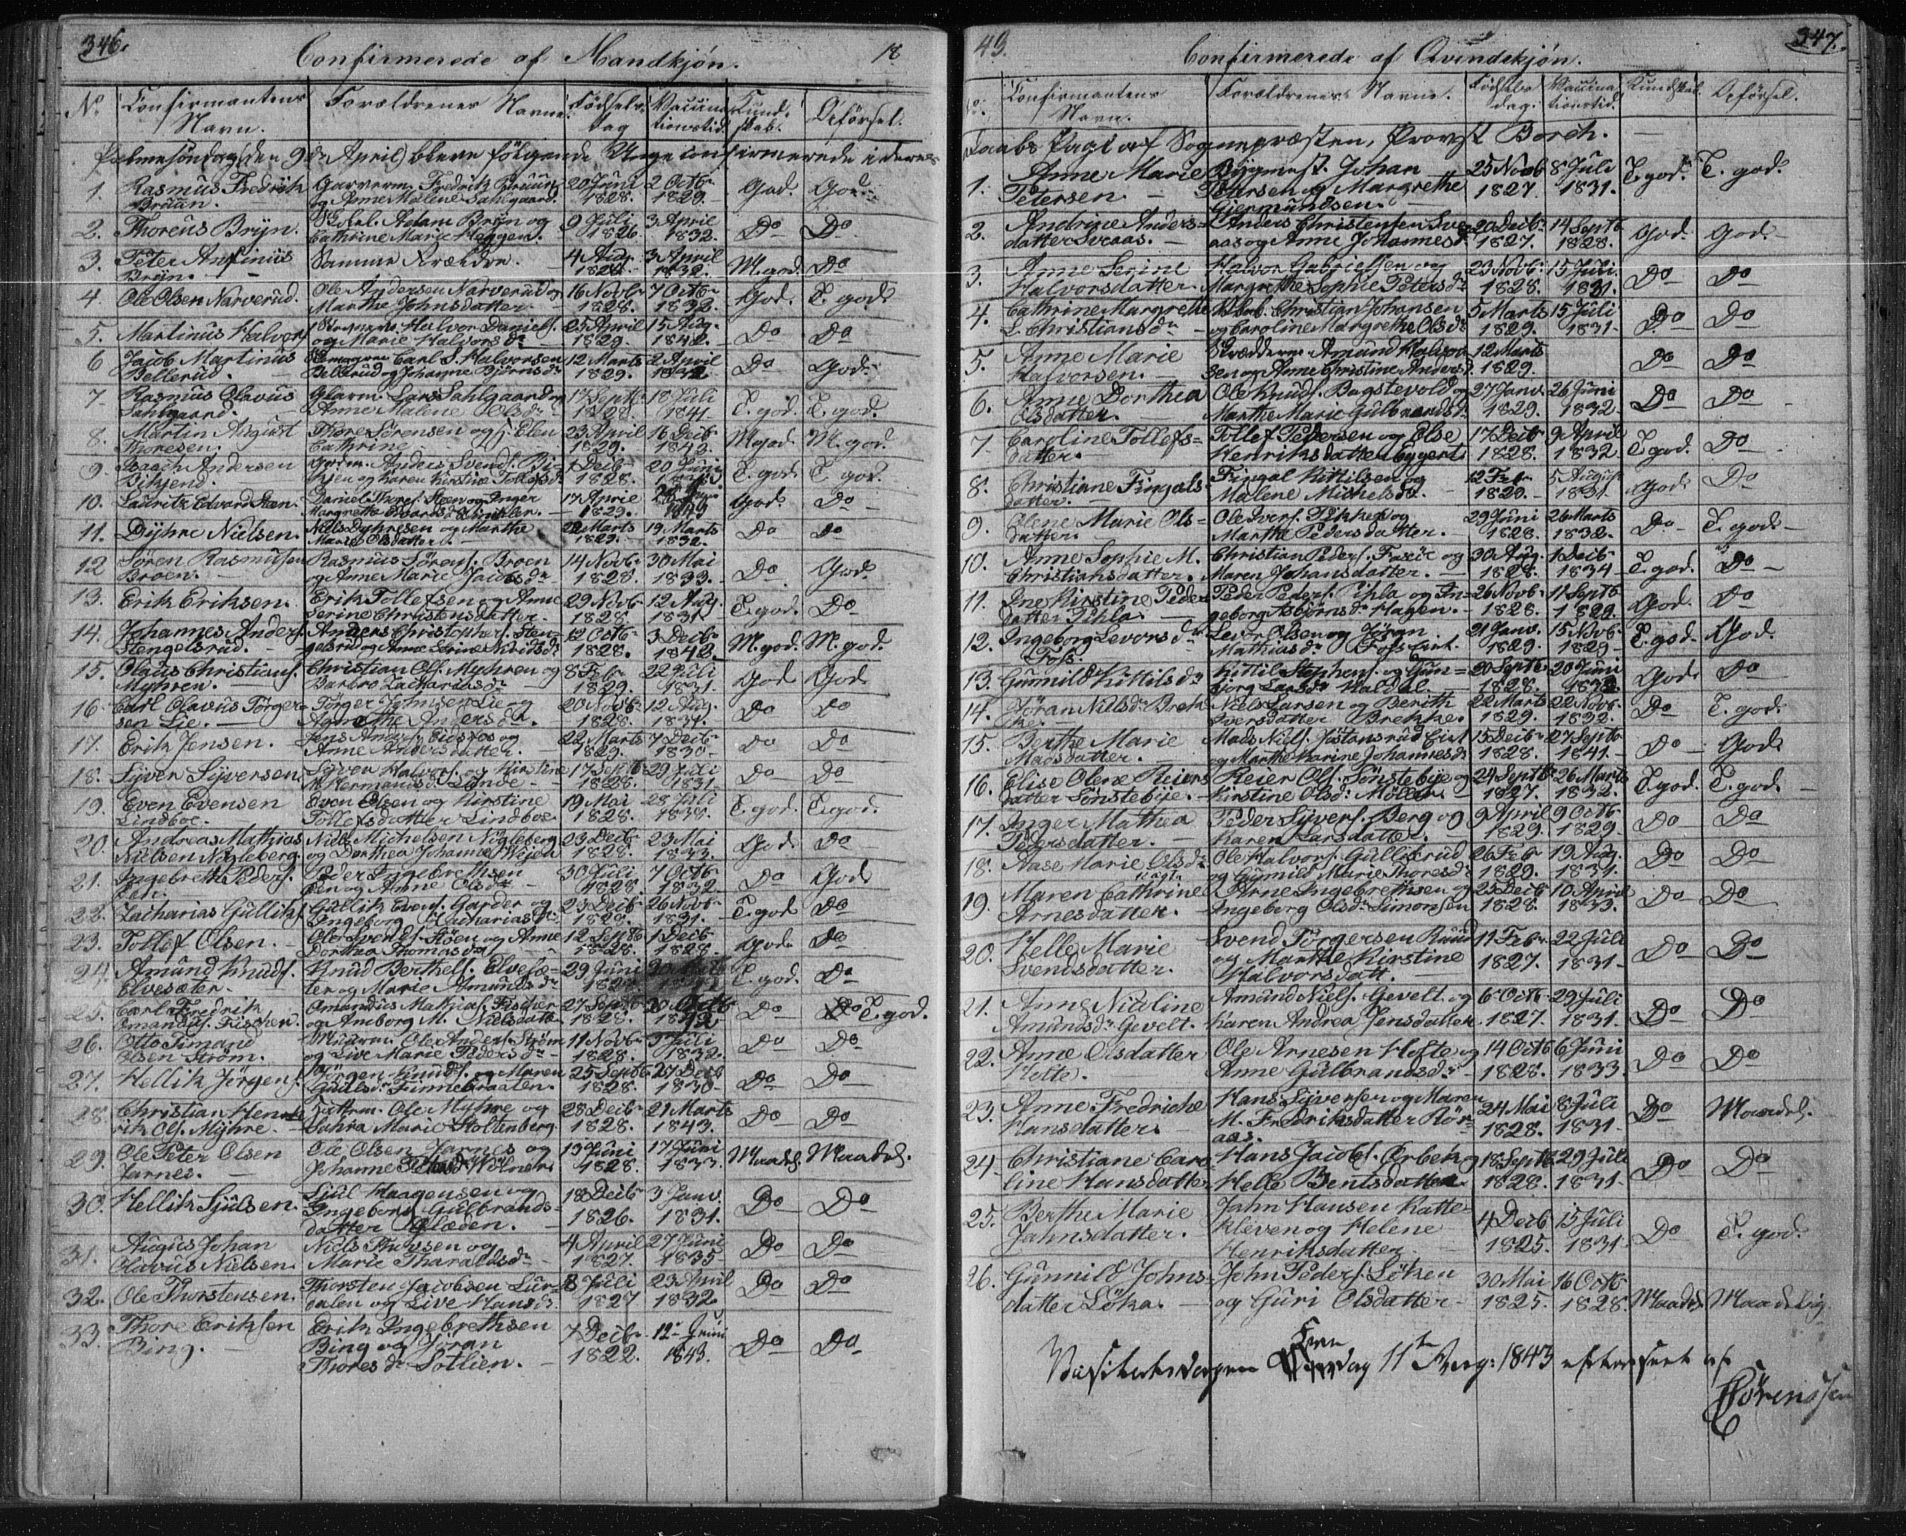 346.
Confirmerede af Mandkjøn.
18
No
Confirmantens Navn.
Forældrenes Navne
Fødsels dag
Vaccinationstid.
Kundskab.
Opførsel.
Palmesøndag (den 9de April) bleve følgende Unge confirmerede i deres
1. Rasmus Fredrik Bruun. Garverm. Fredrik Bruun og Anne Malene Sahlgaard. 20 Juni 1828. 2 Octbr 1829. God. God.
2. Thoreus Bryn. Adam Bryn og Cathrine Marie Heggen. 9 Juli 1826. 3 April 1832. Do Do
3. Peter Anfinius Bryn. Samme Forældre. 4 Aug. 3 April 1832. M.god. Do
4. Ole Olsen Narverud. Ole Andersen Narverud og Marthe Johnsdatter 16 Novbr 1828. 7 Octbr 1832. God. T. god.
5. Martinus Halvors. Halvor Daniels. og Marie Halvorsdr 25 April 1829. 15 Aug. 1842. Do Do
6 Jacob Martinus Bellerud. Carl S. Halvorsen Bellerud og Johanne Bjørnsdr 12 Marts 1829. 2 April 1832. Do God.
7 Rasmus Olavus Sahlgaard. Glarm. Lars Sahlgaard og Anne Malene Olsdr 17 Septbr 1828. 18 Juli 1841. T. god. T. god.
8. Martin August Thoresen. Thore Sørensen og Elen Cathrin 23 April 1829. 16 Decbr 1842. M.god. M. god.
9. Isaach Andersen Bihsend. Anders Svends. og Karen Kirstine Tollefsdr 1 Decbr 1828. 20 Juni T. god. T. god.
10. Lauritz Edvard Steen. Daniel Thores. Steen og Inger Margrethe 17 April 1829. God. Do
11. Dyhre Nielsen. Niels Dyhresen og Marthe Marie Olsdatter. 22 Marts 1829. 19 Marts 1832. Do Do
12 Søren Rasmussen Broen. Rasmus Sørens. Broen og Anne Marie Jacobsdr 14 Novbr 1828. 30 Mai 1833. Do. God.
13. Erik Eriksen. Erik Tollefsen og Anne Serine Christensdatter. 29 Novbr 1828. 12 Aug. 1831. T. god. Do
14. Johannes Anders. Stengelsrud. Anders Christophers. Stengelsrud og Anne Serine 12 Octbr 1828. 3 Decbr 1842. M. god. M. god.
15. Olaus Christians. Myhren. Christian Ols. Myhren og Barbro Zachariasdr 8 Febr 1829. 22 Juli 1831. God God
16. Carl Olavus Tørgersen Lie. Tørger Johnsen Lie og Agnethe Andersdr. 20 Novbr 1828. 12 Aug. 1831. Do Do
17. Erik Jensen. Jens Anders. Eidsfos og Anne Andersdatter. 22 Marts 1829. 7 Decbr 1830. Do Do
18. Syver Syversen. Syver Halvors. og Kirstine M. Hermansdr Lande 17 Septbr 1828. 29 Juli 1831. Do Do
19. Even Evensen Lindboe. Even Olsen og Kirstine Tollefsdatter Lindboe 19 Mai 1828. 28 Juli 1831. T. god. T. god.
20. Andreas Mathias Nielsen Nøgleberg. Niels Michelsen Nøgleberg og Dorthea Johanne Weiden 23 Decbr 1828. 23 Mai 1833. God Do
21. Ingebreth Peders. Peder Ingebrethsen og Anne Olsdr 30 Juli 1828. 7 Octbr 1832. Do God
22. Zacharias Gulliks. Gullik Evens. Garder og Ingeborg Zachariasdr 23 Decbr 1828. 26 Novbr 1831. T. god Do
23. Tollef Olsen. Ole Svends. Støen og Anne Dorthea Thomasdr 12 Septbr 1828. 1 Decbr 1828. God. Do
24. Amund Knuds. Elvesæter. Knud Berthels. Elvesæter og Marie Amundsdr 29 Juni T. god. Do
25. Carl Fredrik Omandus. Fischer. Omandus Mathias. Fischer og Amborg M. Nielsdatter 27 Septbr 1828. 30 Octbr Do Do T. god.
26. Otto Timand Olsen Strøm. Muurm. Ole Anders. Strøm og Live Marie Pedersdr 11 Novbr 1828. 3 Juli 1832. Do Do
27. Hellik Jørgens. Jørgen Knuds. og Maren Finnebraaten. 25 Septbr 1828. 27 Decbr 1830 Do Do
28. Christian Henrik Ols. Myhre. Ole Myhre og Sahra Marie Stoltenberg. 28 Decbr 1828. 21 Marts 1843. Do Do
29. Ole Peter Olsen Jarnes. Ole Olsen Jarnes og Johanne 13 Juni 1828. 17 Juni 1833. Maadel. Maadel.
30. Hellik Sjulsen. Sjul Haagensen og Ingeborg Gulbrandsdatter Glæden. 18 Decbr 1826. 3 Janv. 1831. Do Do
31. Augus Johan Olavus Nielsen. Niels Thorsen og Marie Tharaldsdr 4 April 1827. 27 Juni 1835 Do Do
32. Ole Thorstensen. Thorsten Jacobsen Lurdalen og Live Hansdr 8 Juli 1827 23 April 1832. Do Do
33. Thore Eriksen Bing. Erik Ingebrethsen Bing og Jøran Thoresdr Sotlien. 7 Decbr 1822. 12 Juni 1843. Do Do
43.
Confirmerede af Qvindekjøn.
347.
Confirmantens Navn.
Forældrenes Navne.
Fødsels dag.
Vaccinationstid.
Kundskab.
Opførsel.
Daabs Pagt af Sognepræsten, Provst Borch.
1. Anne Marie Petersen. Bygmest. Johan Petersen og Margrethe Giermundsen. 25 Novb 1827. 8 Juli 1831. T. god. T. god.
2. Andrine Andersdatter Sveaas. Anders Christensen Sveaas og Anne Johannesdr. 20 Decbr 1827. 14 Septbr 1828. God. God.
3. Anne Serine Halvorsdatter. Halvor Gabrielsen og Margrethe Sophie Petersdr 23 Novbr 1828. 15 Juli 1831. Do Do
4. Cathrine Margrethe L. Christiansdr Christian Johansen og Caroline Margrethe Olsdr 5 Marts 1829. 15 Juli 1831. Do Do
5. Anne Marie Halvorsen. Skrædderm. Amund Halvorsen og Anne Christine Andersd. 12 Marts 1829. Do Do
6. Anne Dorthea Olsdatter. Ole Knuds. Bagstevold og Marthe Marie Gulbrandsd. 27 Janv. 1829. 26 Juni 1832. Do Do
7. Caroline Tollefsdatter. Tollef Pedersen og Else Henriksdatter Eggerts 17 Decbr 1828. 9 April 1832. T. god. Do
8. Christiane Fingalsdatter. Fingal Kittilsen og Malene Michelsdr. 12 Febr 1829. 5 August 1831. God Do
9. Olene Marie Olsdatter. Ole Ivers. Pikken og Marthe Pedersdatter. 29 Juni 1828. 26 Marts 1832. Do T. god
10. Anne Sophie M. Christiansdatter. Christian Peders. og Maren Johansdatter. 30 Aug. 1828. 1 Decbr 1834 T. god. Do
11. Ine Kirstine Pedersdatter Pihla. Peder Peders. Pihla og Ingeborg Asbjørnsdr Hagen. 26 Novbr 1828. 11 Septbr 1829. God. Do
12. Ingeborg Levorsdr Foss. Levor Olsen og Jøran Mathiasdr Foss Eiet. 21 Janv. 1829. 15 Novbr 1829 T. god. God.
13. Gunild Kittilsdr Kittil Stephens. og Gunborg Larsdr Haldal. 20 Septbr 1828. 20 Juni 1832. God. Do
14. Jøran Nielsdr Brekke. Niels Larsen og Berith Iversdatter Brekke. 22 Marts 1829. 22 Novbr 1832. Do T. god.
15. Berthe Marie Madsdatter. Mads Niels. Jøstansrud Eiet og Marthe Karine Johannesdr 15 Decbr 1828. 27 Septbr 1841. Do God.
16. Elise Olene Reiersdatter Sønstebye. Reier Ols. Sønstebye og Kirstine Olsdr Møller. 24 Septbr 1827. 26 Marts 1832. T. god. T. god.
17. Inger Mathea Pedersdatter. Peder Syvers. Berg og Karen Larsdatter. 9 April 1829. 9 Octbr 1829. Do Do
18. Aase Marie Olsdr Ole Halvors. Gullikrud og Gunild Marie Thoresdr 26 Febr 1829. 19 Aug. 1831. Do Do
19. Maren Cathrine Arnesdatter. Arne Ingebrethsen og Ingeborg Olsdr Simonsen 23 Decbr 1828. 10 April 1833. Do Do
20. Helle Marie Svendsdatter. Svend Tørgersen Ruud og Marthe Kirstine Halvorsdatt. 11 Febr. 1827. 22 Juli 1831. Do Do
21. Anne Nicoline Amundsdr Gevelt. Amund Niels. Gevelt og Karen Andrea Jensdatter. 6 Octbr 1827. 29 Juli 1831. Do Do
22. Anne Olsdatter Hofte. Ole Arnesen Hofte og Anne Gulbrandsdr 14 Octb 1828. 6 Juni 1833. Do Do
23. Anne Fredrikke Hansdatter. Hans Syversen og Maren M. Fredriksdatter Røraas. 24 Mai 1828. 8 Juli 1831. Do Maadel.
24. Christiane Caroline Hansdatter Hans Jacobs. Ørbek og Helle Bentsdatter 18 Septbr 1828. 29 Juli 1831. Do Do
25. Berthe Marie Jahnsdatter. Jahn Hansen Katteklëven og Helene Henriksdatter. 4 Decb 1825. 15 Juli 1831. Do T. god.
26. Gunnild Johnsdatter Løka. John Peders. Løken og Guri Olsdatter 30 Mai 1825. 16 Octbr 1828. Maadel. Maadelig.
Visitatsdagen Fredag 11te Aug: 1843 efterseet af
Sørenssen